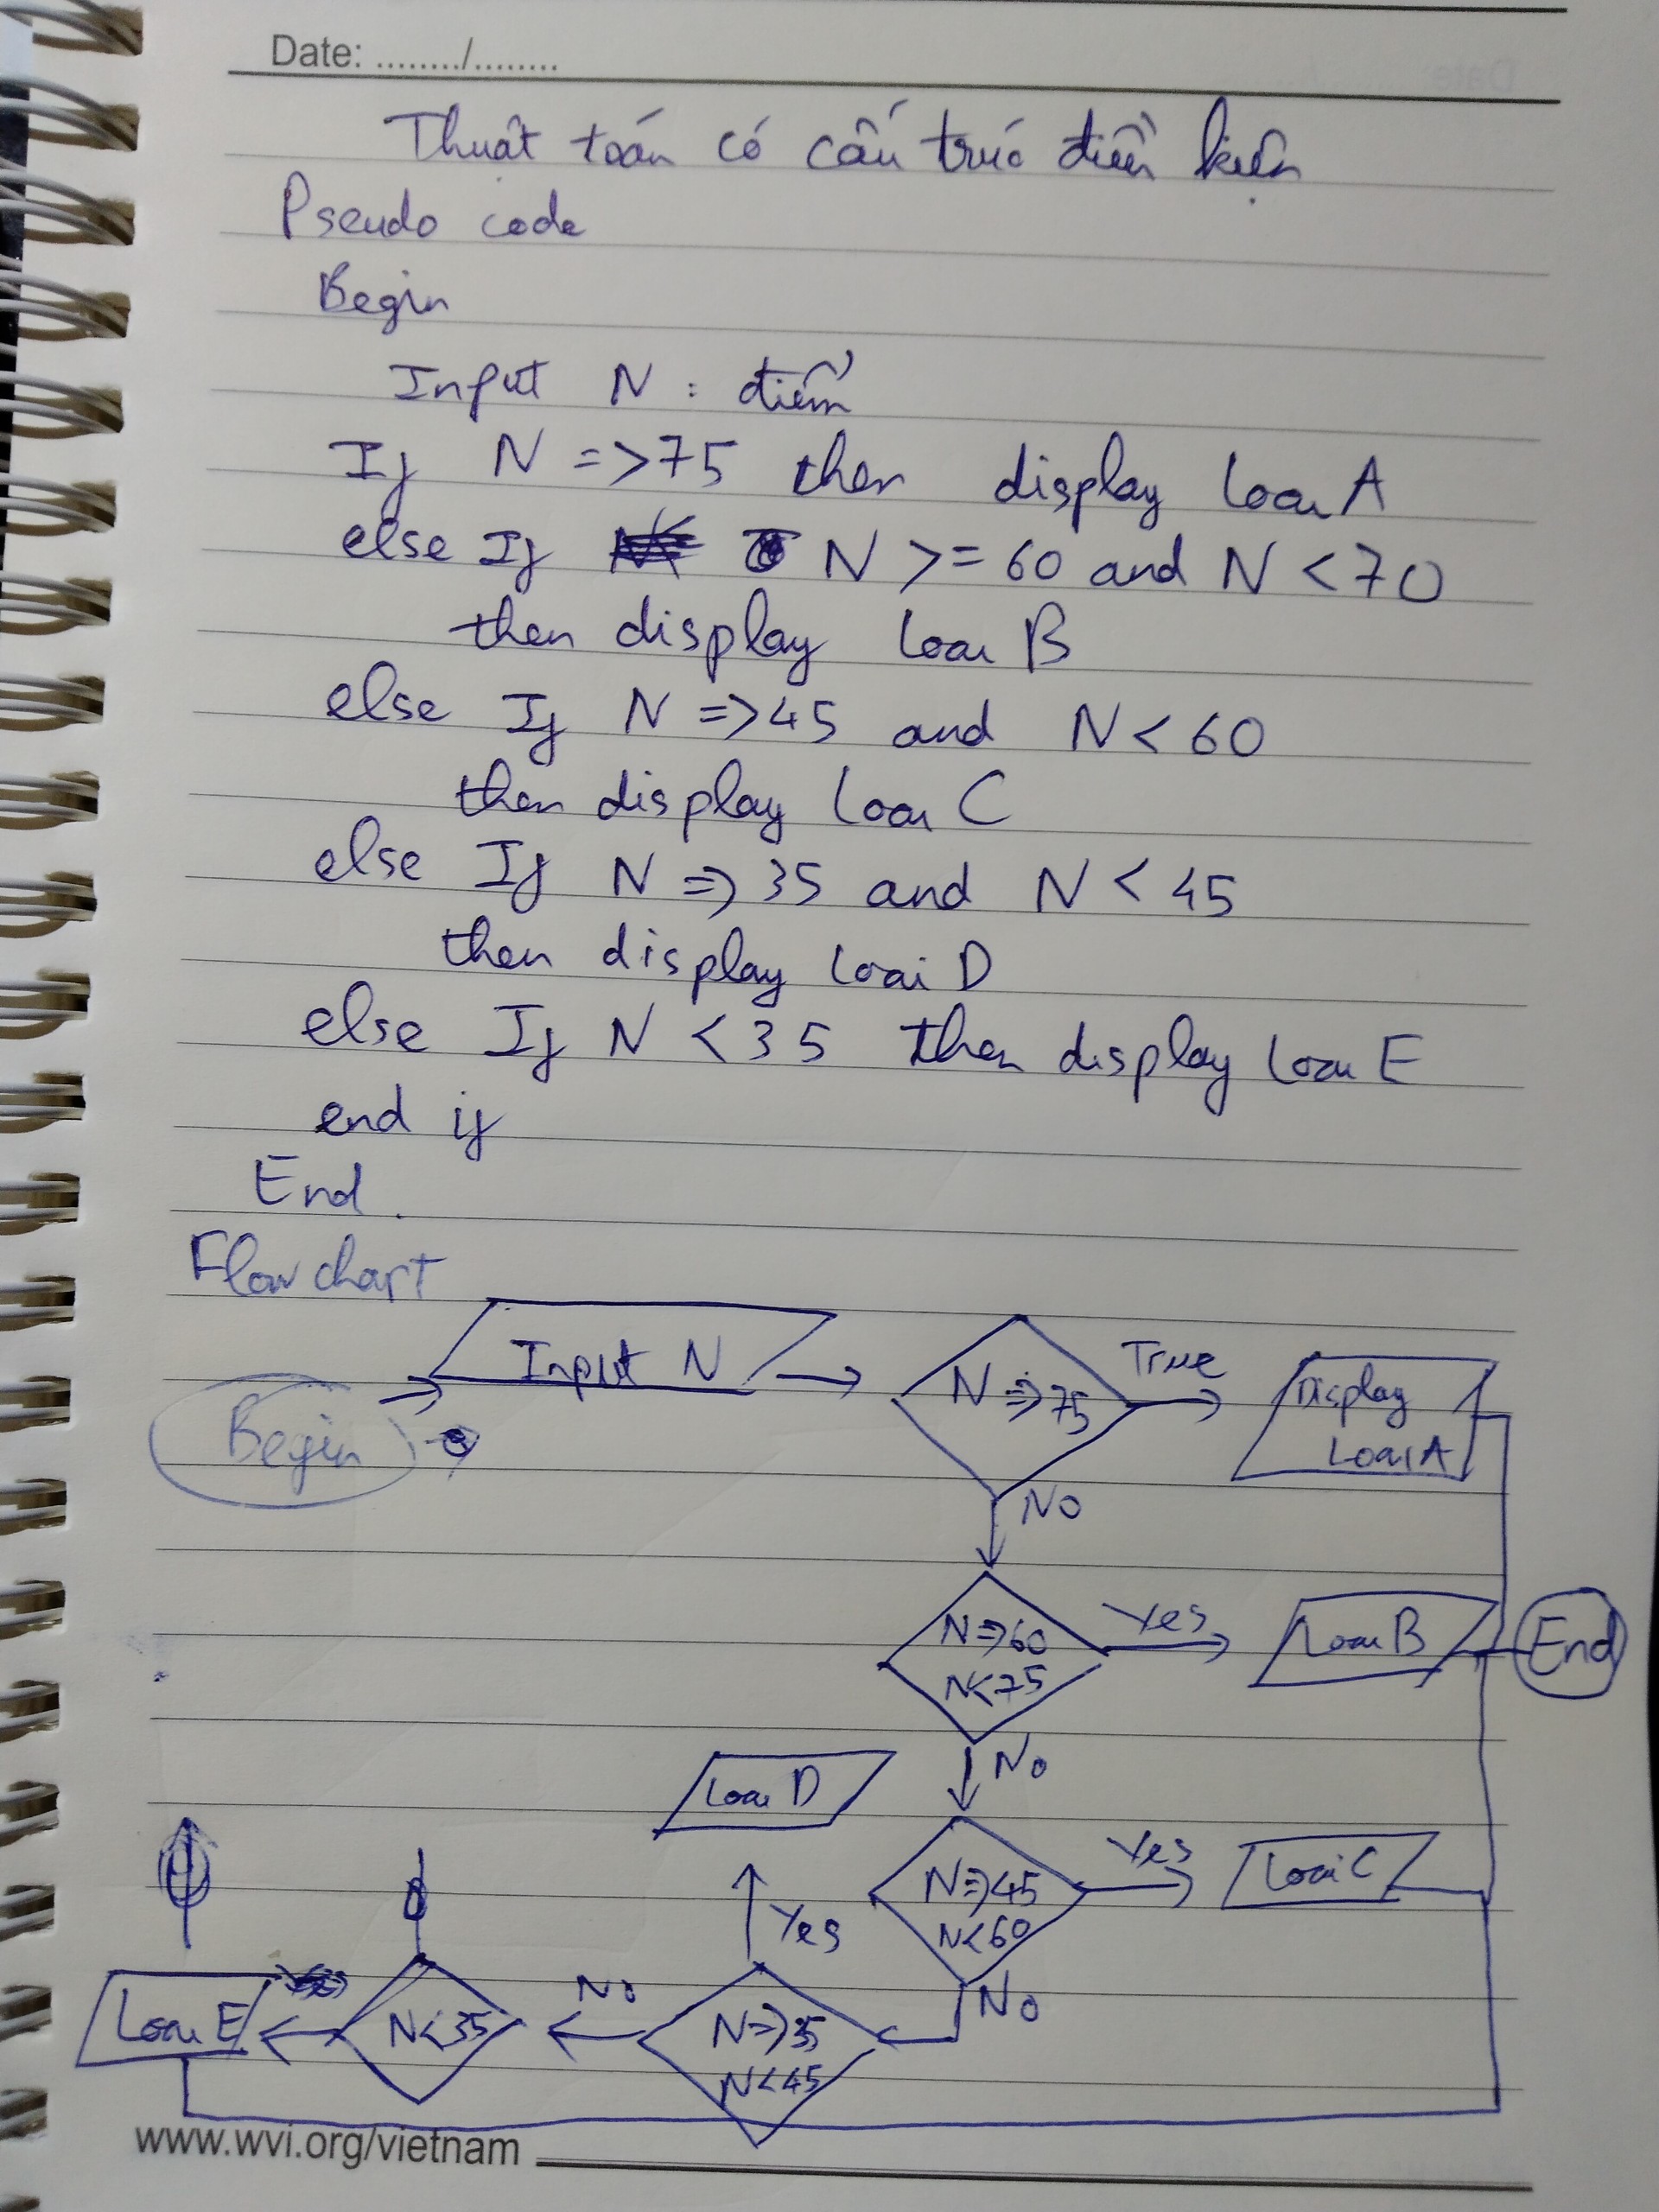 Date: ......../........
Thuật toán có cấu trúc điều kiện
Pseudo code
Begin
Input N : điểm
If N =>75 then display Loại A
else If N >= 60 and N < 70
then display Loại B
else If N =>45 and N < 60
then display Loại C
else If N => 35 and N < 45
then display Loại D
else If N < 35 then display Loại E
end if
End.
Flow chart
Begin
Input N
N =>75
True
Display
Loại A
No
N=>60
N<75
Yes
Loại B
End
No
Loại D
N=>45
N<60
Yes
Loại C
Yes
No
N=>35
N<45
No
N<35
Loại E
www.wvi.org/vietnam